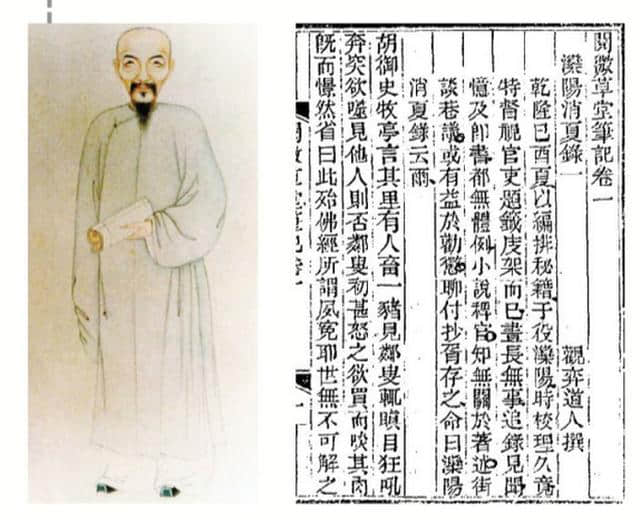 閱微草堂筆記卷一
灤陽消夏錄一 觀弈道人撰
乾隆己酉夏以編排秘籍于役灤陽時校理久竟
特督視官吏題籤庋架而已晝長無事追錄見聞
憶及即書都無體例小說稗官知無關於著述街
談巷議或有益於勸懲聊付抄胥存之命曰灤陽
消夏錄云爾
胡御史牧亭言其里有人畜一豬見鄰叟輒瞋目狂吼
奔突欲噬見他人則否鄰叟初甚怒之欲買而啖其肉
既而憬然省曰此殆佛經所謂夙冤耶世無不可解之